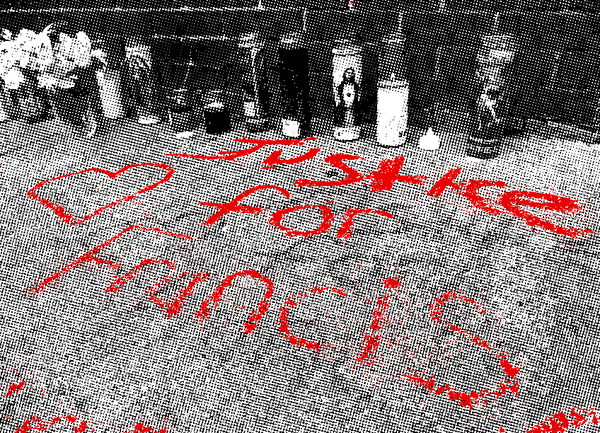 Justice
for
Francis